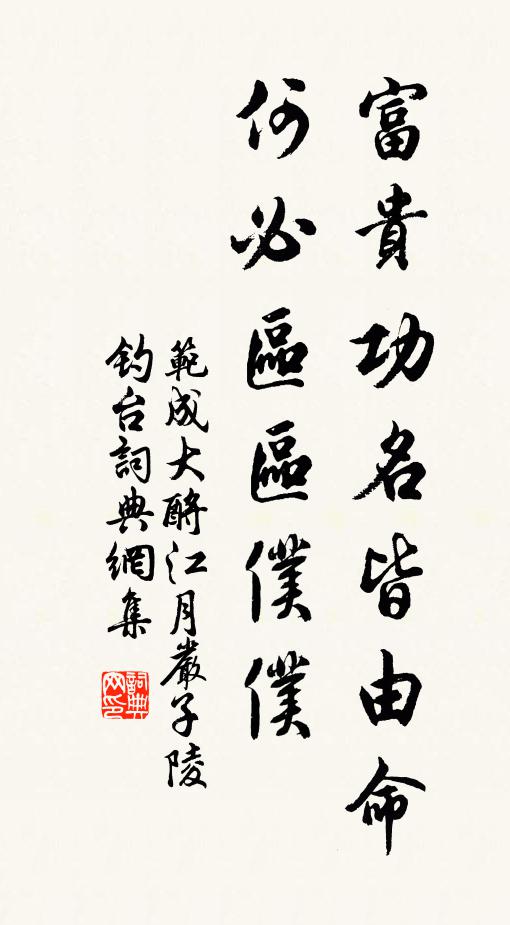 富貴功名皆由命
何必區區僕僕
範成大酹江月嚴子陵
釣台詞典網集
詞典網印